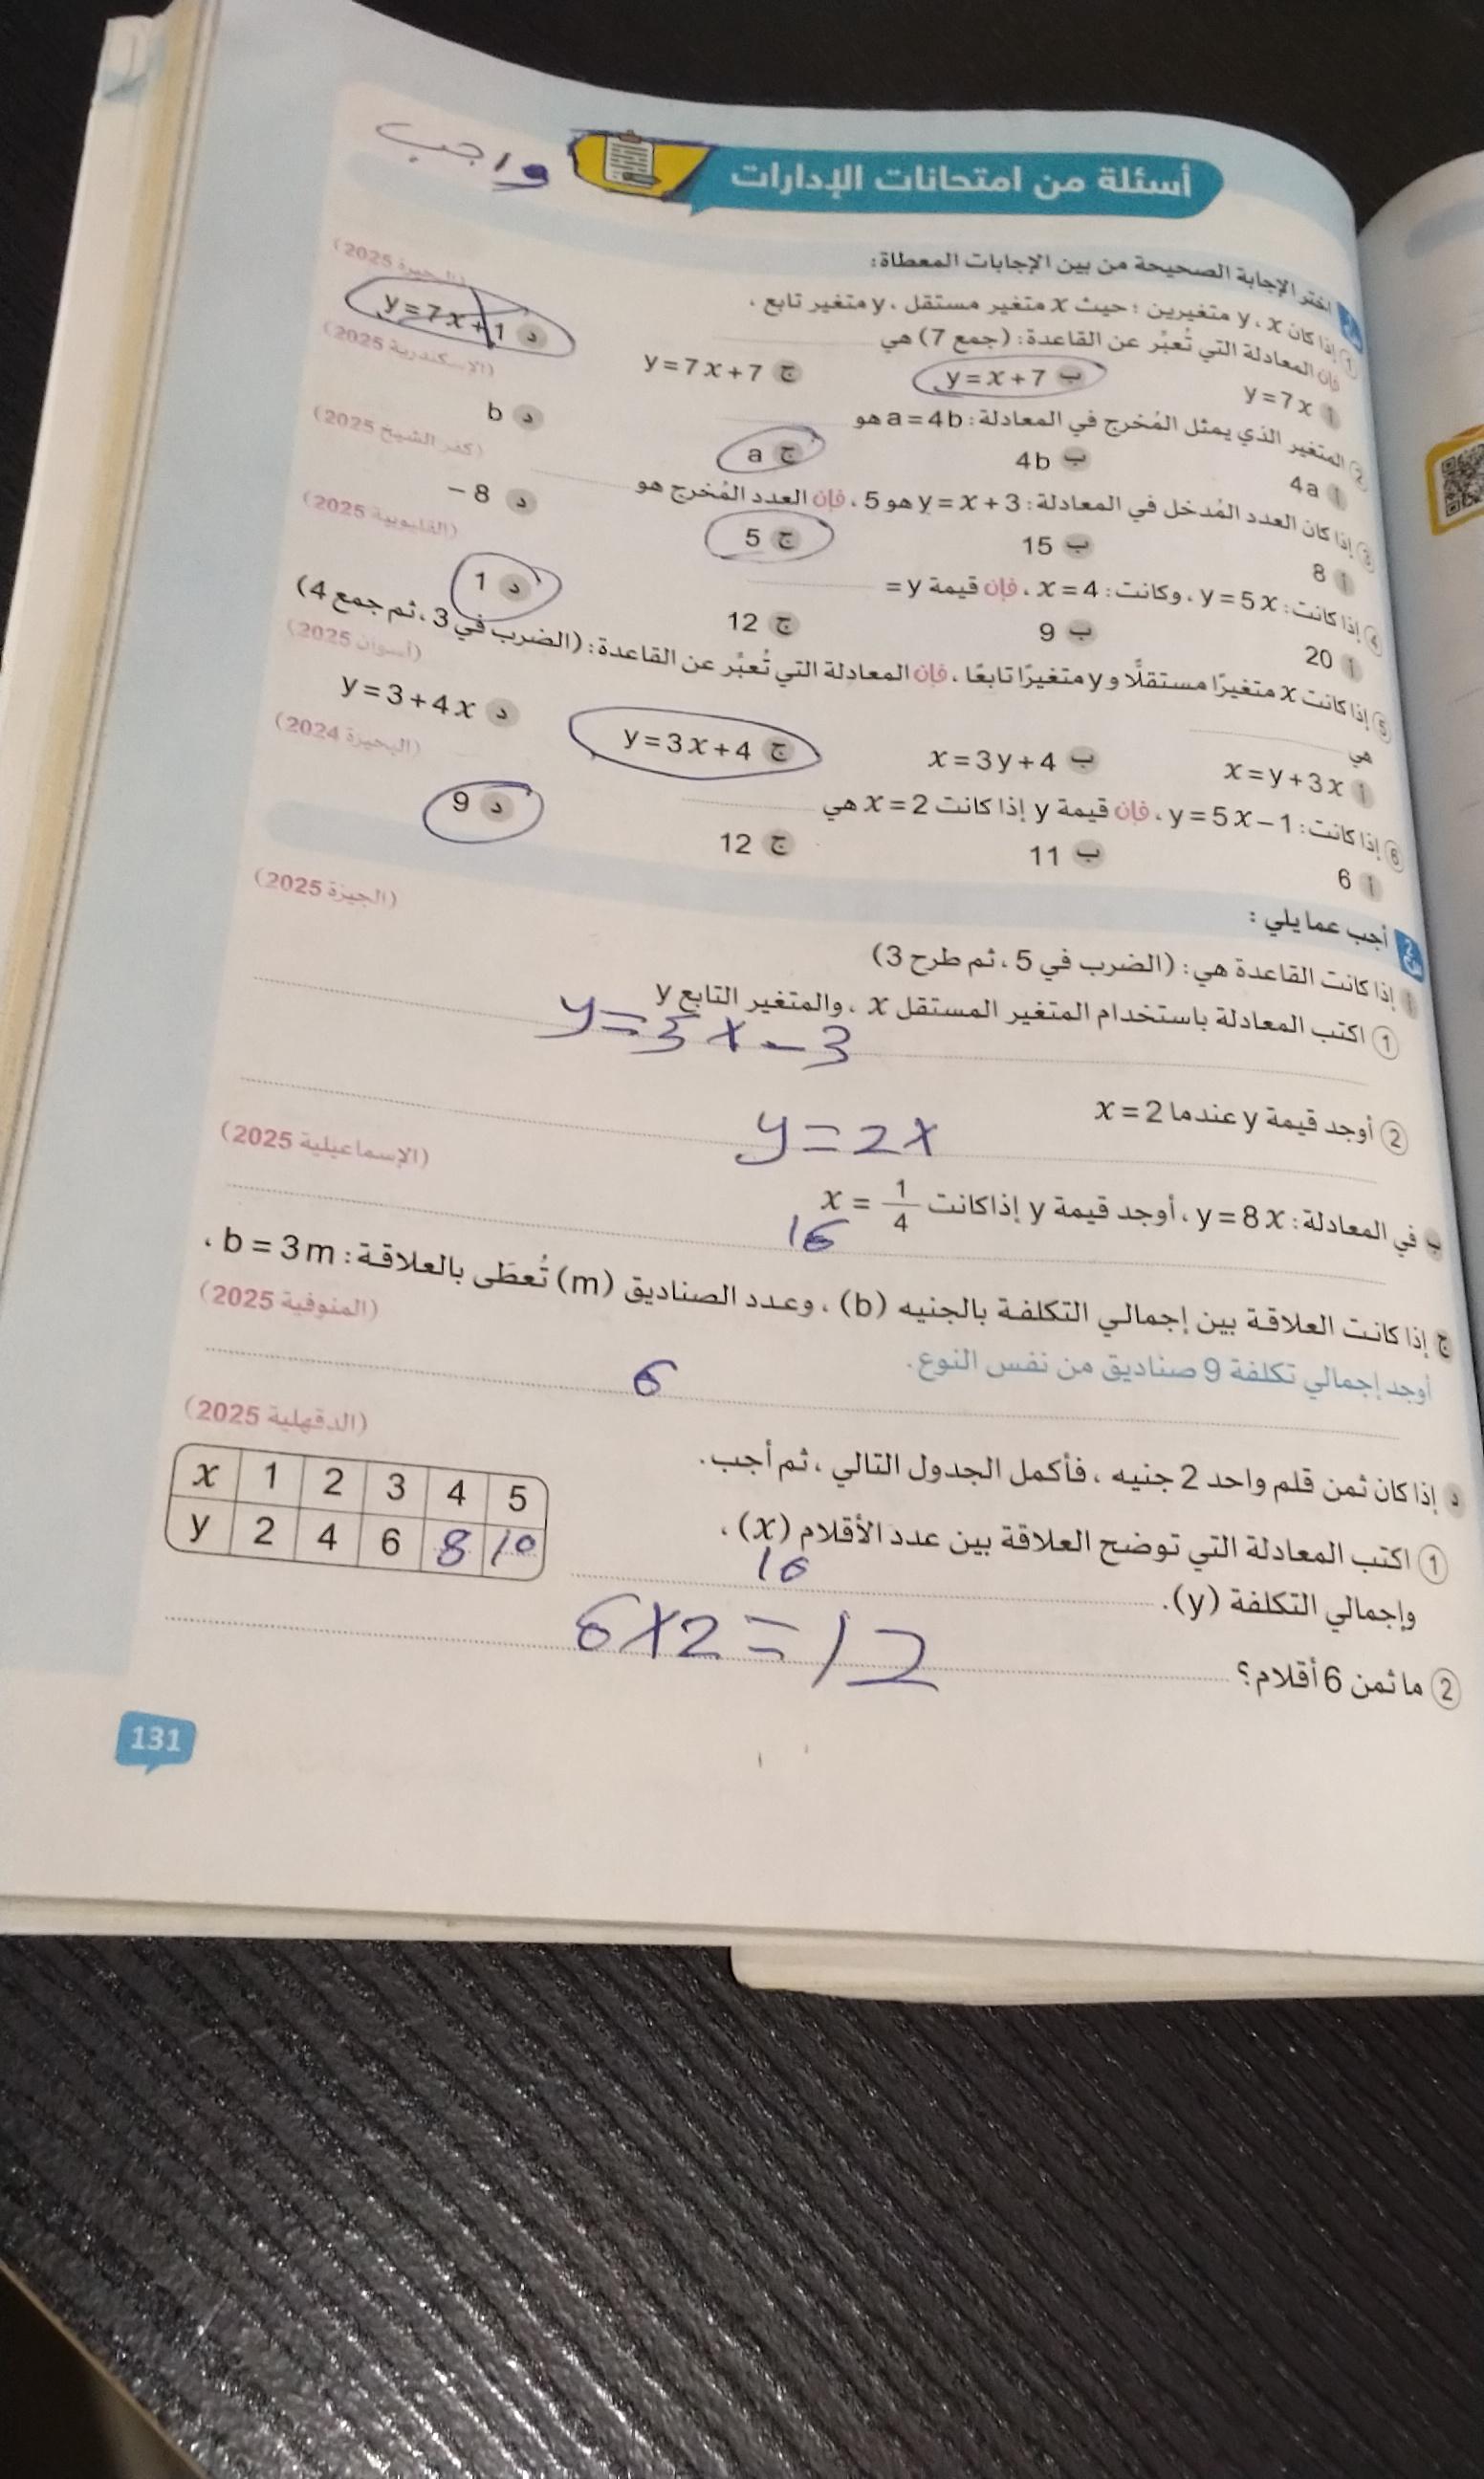 واجب
أسئلة من امتحانات الإدارات
اختر الإجابة الصحيحة من بين الإجابات المعطاة:
① إذا كان x ، y متغيرين ؛ حيث x متغير مستقل ، y متغير تابع ،
فإن المعادلة التي تُعبِّر عن القاعدة: (جمع 7) هي (البحيرة 2025)
أ y = 7x ب y = x + 7 ج y = 7x + 7 د y = 7x + 1
② المتغير الذي يمثل المُخرج في المعادلة: a = 4b هو (الإسكندرية 2025)
أ 4a ب 4b ج a د b
③ إذا كان العدد المُدخل في المعادلة: y = x + 3 هو 5 ، فإن العدد المُخرج هو (كفر الشيخ 2025)
أ 8 ب 15 ج 5 د – 8
④ إذا كانت: y = 5x ، وكانت: x = 4 ، فإن قيمة y = (القليوبية 2025)
أ 20 ب 9 ج 12 د 1
⑤ إذا كانت x متغيرًا مستقلًّا و y متغيرًا تابعًا ، فإن المعادلة التي تُعبِّر عن القاعدة: (الضرب في 3 ، ثم جمع 4)
هي (أسوان 2025)
أ x = y + 3x ب x = 3y + 4 ج y = 3x + 4 د y = 3 + 4x
⑥ إذا كانت: y = 5x – 1 ، فإن قيمة y إذا كانت x = 2 هي (البحيرة 2024)
أ 6 ب 11 ج 12 د 9
2 أجب عما يلي :
أ إذا كانت القاعدة هي: (الضرب في 5 ، ثم طرح 3) (الجيزة 2025)
① اكتب المعادلة باستخدام المتغير المستقل x ، والمتغير التابع y
y = 5x – 3
② أوجد قيمة y عندما x = 2
y = 2x
ب في المعادلة: y = 8x ، أوجد قيمة y إذا كانت x = 1/4 (الإسماعيلية 2025)
16
ج إذا كانت العلاقة بين إجمالي التكلفة بالجنيه (b) ، وعدد الصناديق (m) تُعطَى بالعلاقة: b = 3m ،
أوجد إجمالي تكلفة 9 صناديق من نفس النوع. (المنوفية 2025)
6
د إذا كان ثمن قلم واحد 2 جنيه ، فأكمل الجدول التالي ، ثم أجب. (الدقهلية 2025)
x 1 2 3 4 5
y 2 4 6 8 10
① اكتب المعادلة التي توضح العلاقة بين عدد الأقلام (x) ،
وإجمالي التكلفة (y).
16
② ما ثمن 6 أقلام؟
6 x 2 = 12
131